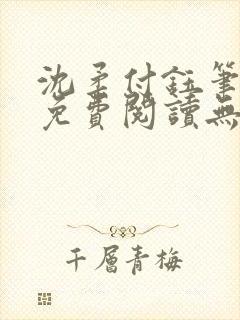 沈柔付鈺筆
免費閱讀無
千層青梅